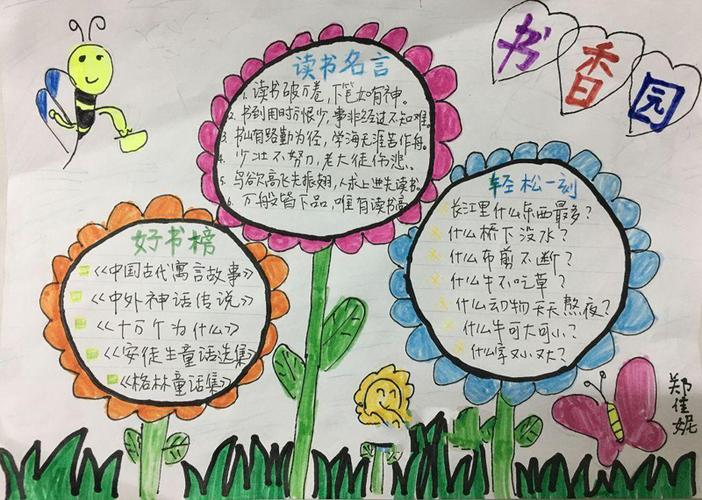 书香园
读书名言
1. 读书破万卷,下笔如有神。
2. 书到用时方恨少,事非经过不知难。
3. 书山有路勤为径,学海无涯苦作舟。
4. 少壮不努力,老大徒伤悲。
5. 鸟欲高飞先振翅,人求上进先读书。
6. 万般皆下品,唯有读书高。
好书榜
《中国古代寓言故事》
《中外神话传说》
《十万个为什么》
《安徒生童话选集》
《格林童话集》
轻松一刻
长江里什么东西最多?
什么桥下没水?
什么布剪不断?
什么牛不吃草?
什么动物天天熬夜?
什么牛可大可小?
什么字又小又大?
郑佳妮